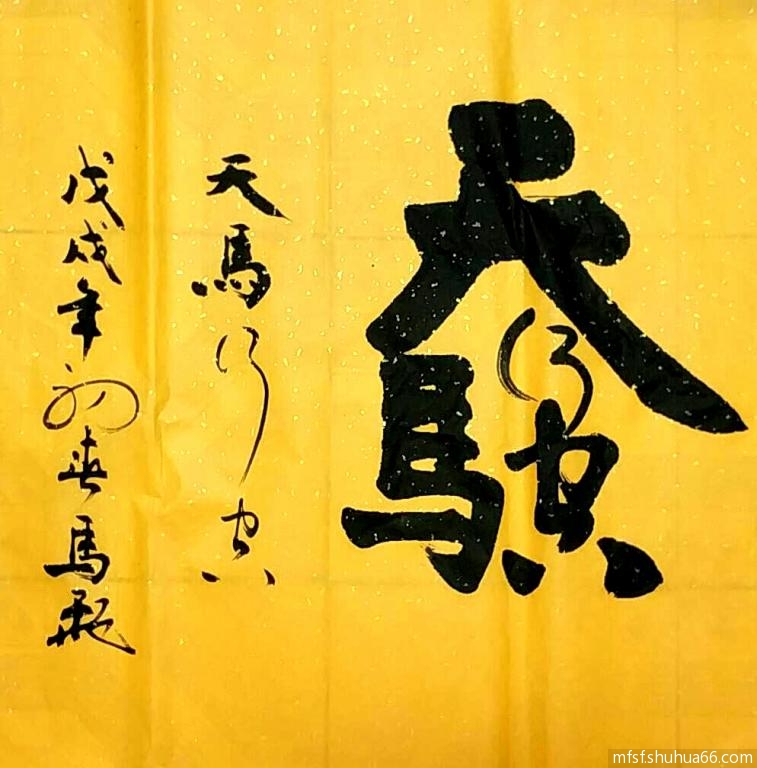 天馬行空
天馬行空
戊戌年初春馬飛
mfsf.shuhua66.com